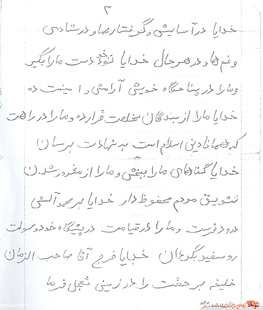 ۲
خدایا در آسایش و گرفتاریها و در شادی
و غم ها و در هر حال خدایا تو خود دست ما را بگیر
و ما را در پناهگاه خویش آرامش و امنیت ده
خدایا ما را از بندگان مخلصت قرار ده و ما را در راهت
که همانا دین اسلام است به شهادت برسان
خدایا گناهای ما را ببخش و ما را از مغرور شدن
تشویق مردم محفوظ دار خدایا بر محمد آلش
درود فرست و ما را در قیامت در پیشگاه خود و رسولت
رو سفید بگردان خدایا فرج آقا صاحب الزمان
خلیفه بر حقت را در زمین تعجیل فرما